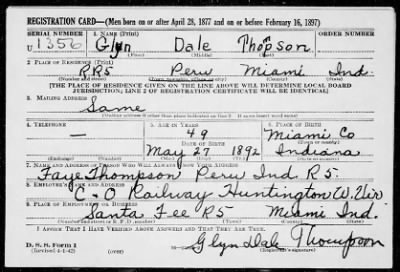 REGISTRATION CARD—(Men born on or after April 28, 1877 and on or before February 16, 1897)
SERIAL NUMBER 1. NAME (Print) ORDER NUMBER
U 1356 Glyn Dale Thopson
2. PLACE OF RESIDENCE (Print)
RR5 Peru Miami Ind.
(Number and street) (Town, township, village, or city) (County) (State)
[THE PLACE OF RESIDENCE GIVEN ON THE LINE ABOVE WILL DETERMINE LOCAL BOARD
JURISDICTION; LINE 2 OF REGISTRATION CERTIFICATE WILL BE IDENTICAL]
3. MAILING ADDRESS
Same
[Mailing address if other than place indicated on line 2. If same insert word same]
4. TELEPHONE 5. AGE IN YEARS 6. PLACE OF BIRTH
— 49 Miami Co
DATE OF BIRTH (Town or county)
May 27 1892 Indiana
(Exchange) (Number) (Mo.) (Day) (Yr.) (State or country)
7. NAME AND ADDRESS OF PERSON WHO WILL ALWAYS KNOW YOUR ADDRESS
Faye Thompson Peru Ind R5.
8. EMPLOYER'S NAME AND ADDRESS
C-O Railway Huntington W. Vir
9. PLACE OF EMPLOYMENT OR BUSINESS
Santa Fee R5 Miami Ind.
(Number and street or R. F. D. number) (Town) (County) (State)
I AFFIRM THAT I HAVE VERIFIED ABOVE ANSWERS AND THAT THEY ARE TRUE.
D. S. S. Form 1
(Revised 4-1-42) (over) Glyn Dale Thompson
(Registrant's signature)